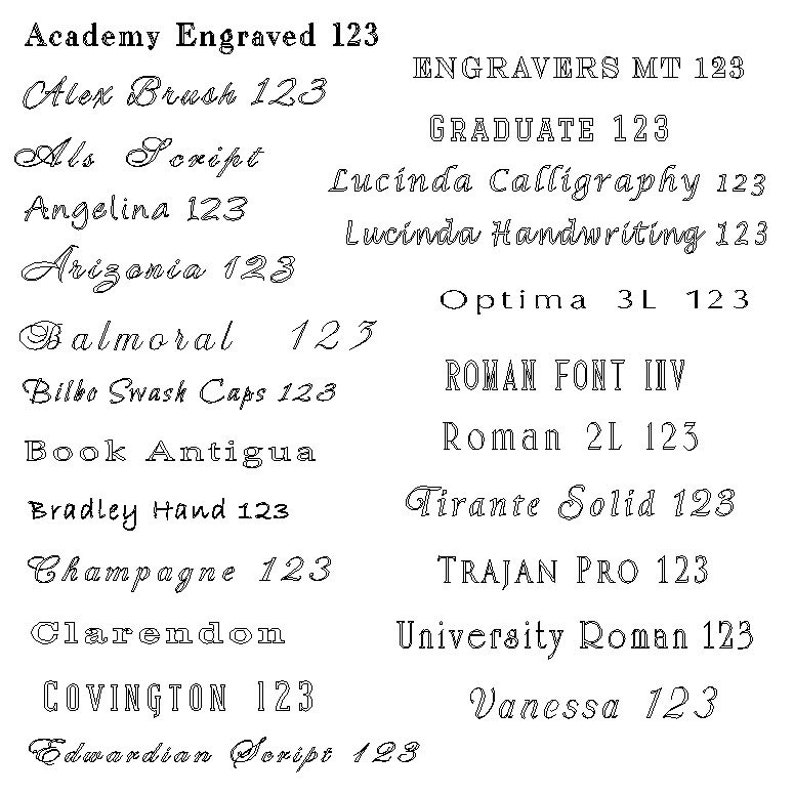 Academy Engraved 123
Alex Brush 123
Als Script
Angelina 123
Arizonia 123
Balmoral 123
Bilbo Swash Caps 123
Book Antigua
Bradley Hand 123
Champagne 123
Clarendon
COVINGTON 123
Edwardian Script 123
ENGRAVERS MT 123
GRADUATE 123
Lucinda Calligraphy 123
Lucinda Handwriting 123
Optima 3L 123
ROMAN FONT IIV
Roman 2L 123
Tirante Solid 123
TRAJAN PRO 123
University Roman 123
Vanessa 123